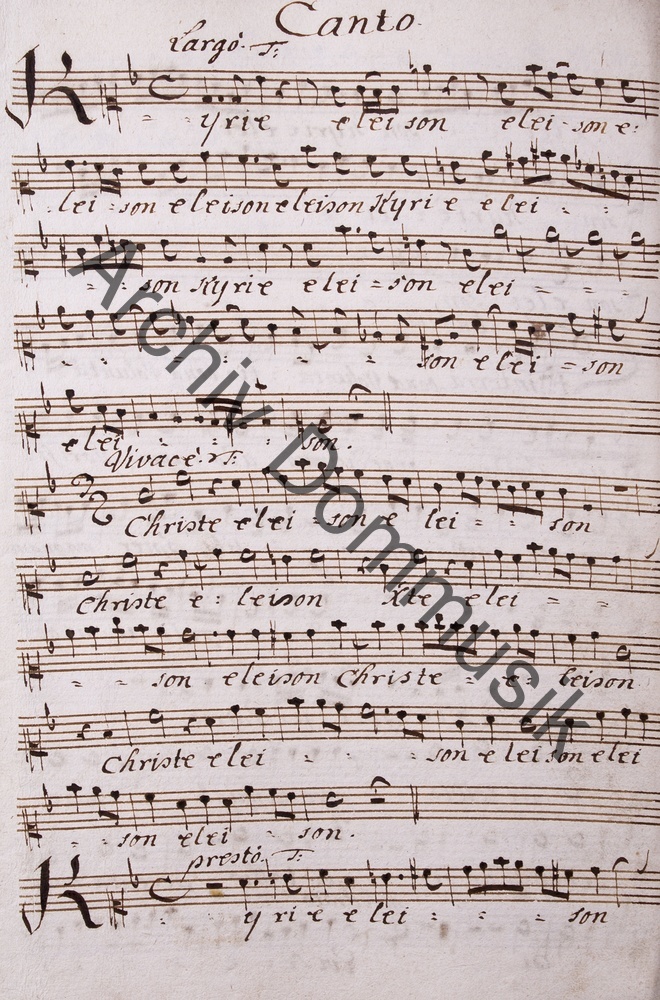 Canto.
Largo. T:
Kyrie eleison elei-son e:
lei-son eleison eleison Kyrie elei
son Kyrie elei=son elei
son elei=son
elei son.
Vivace. T:
Christe elei=son e lei son
Christe e: leison Xte elei
son eleison Christe e: leison
Christe elei son eleison elei
son elei son.
presto. T:
Kyrie elei son
Archiv Dommusik